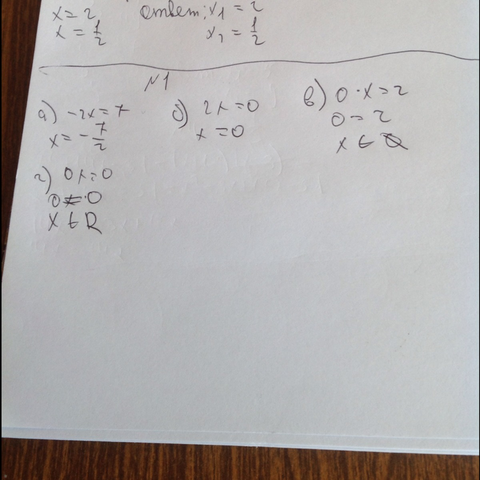 x = 2 Ответ: x₁ = 2
x = 1/2 x₂ = 1/2
№1
а) -2x = 7
x = -7/2
б) 2x = 0
x = 0
в) 0 · x = 2
0 = 2
x ∈ ∅
г) 0x = 0
0 = 0
x ∈ R